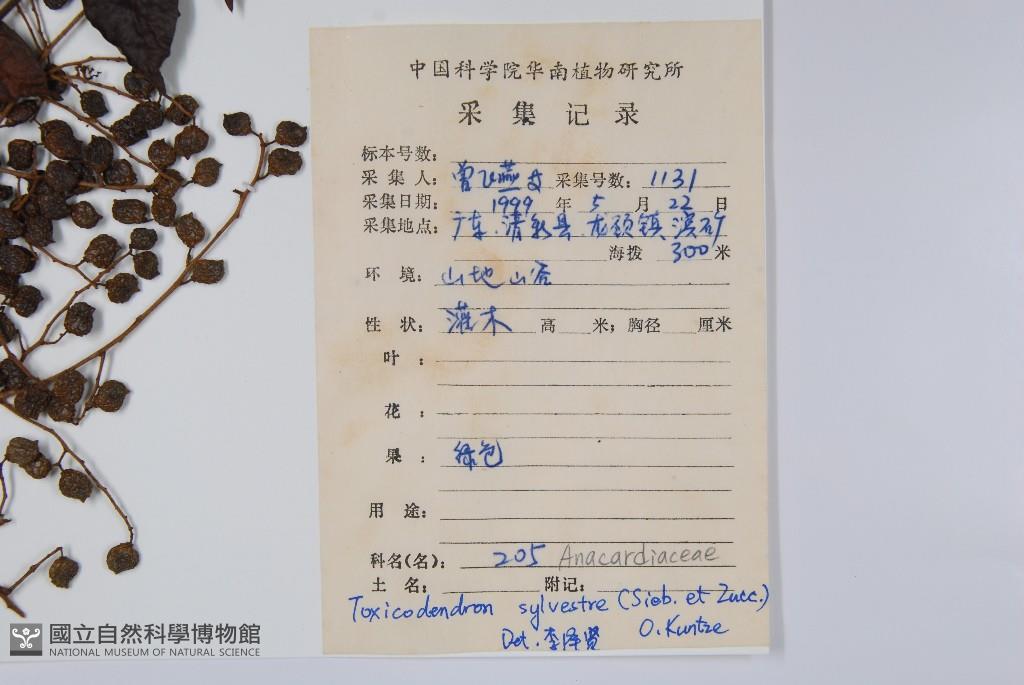 中国科学院华南植物研究所
采集记录
标本号数：
采集人：曾飞燕 采集号数：1131
采集日期：1999年5月22日
采集地点：广东.清新县龙颈镇滨矿
海拨300米
环境：山地山谷
性状：灌木 高 米；胸径 厘米
叶：
花：
果：绿色
用途：
科名(名)：205 Anacardiaceae
土名： 附记：
Toxicodendron sylvestre (Sieb. et Zucc.)
O. Kuntze
Det. 李泽贤
國立自然科學博物館
NATIONAL MUSEUM OF NATURAL SCIENCE